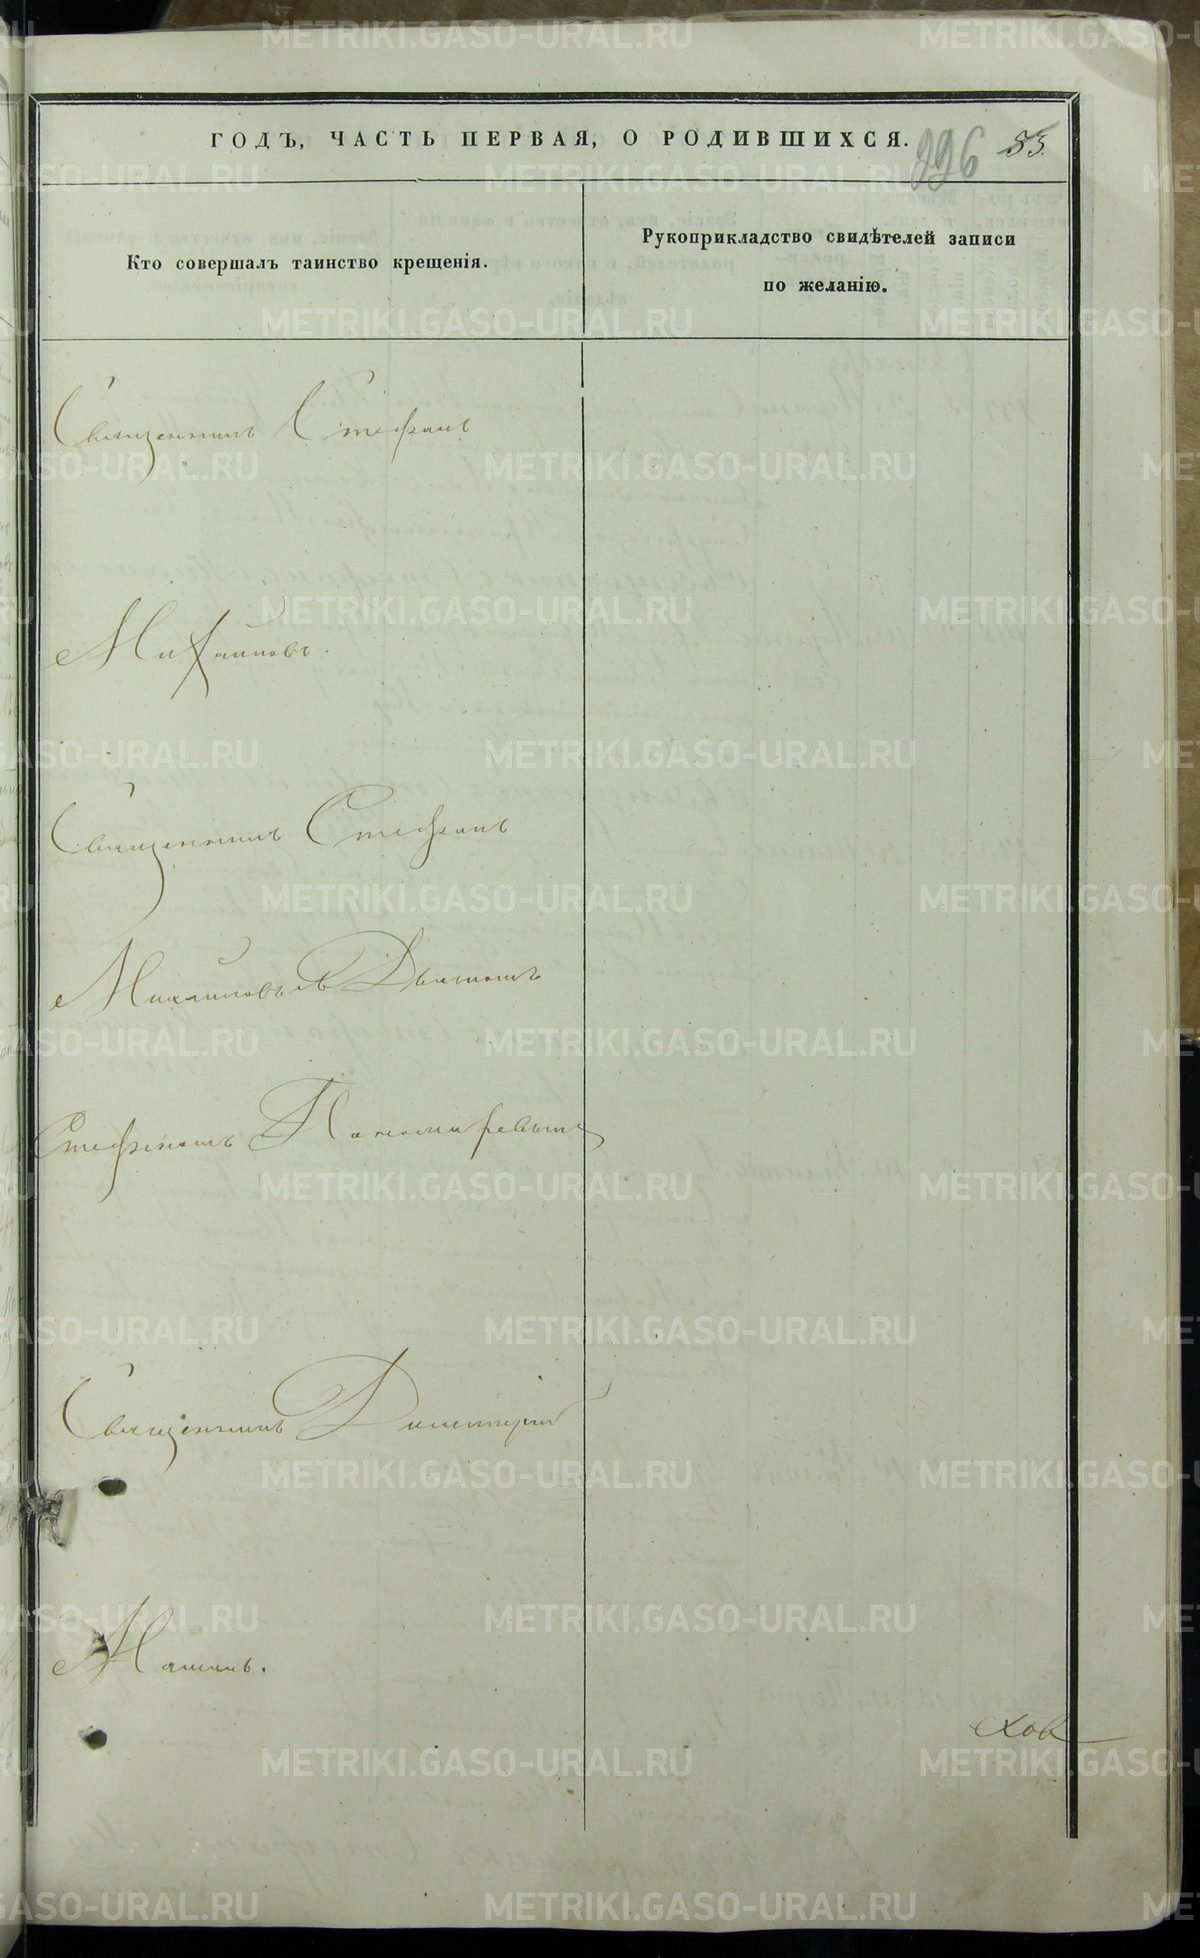 ГОДЪ, ЧАСТЬ ПЕРВАЯ, О РОДИВШИХСЯ.
996 53.
Кто совершалъ таинство крещенія.
Рукоприкладство свидѣтелей записи
по желанію.
Священникъ Стефанъ
Михайловъ.
Священникъ Стефанъ
Михайловъ съ Дьячкомъ
Стефаномъ Пономаревымъ
Священникъ Димитрій
хов
METRIKI.GASO-URAL.RU